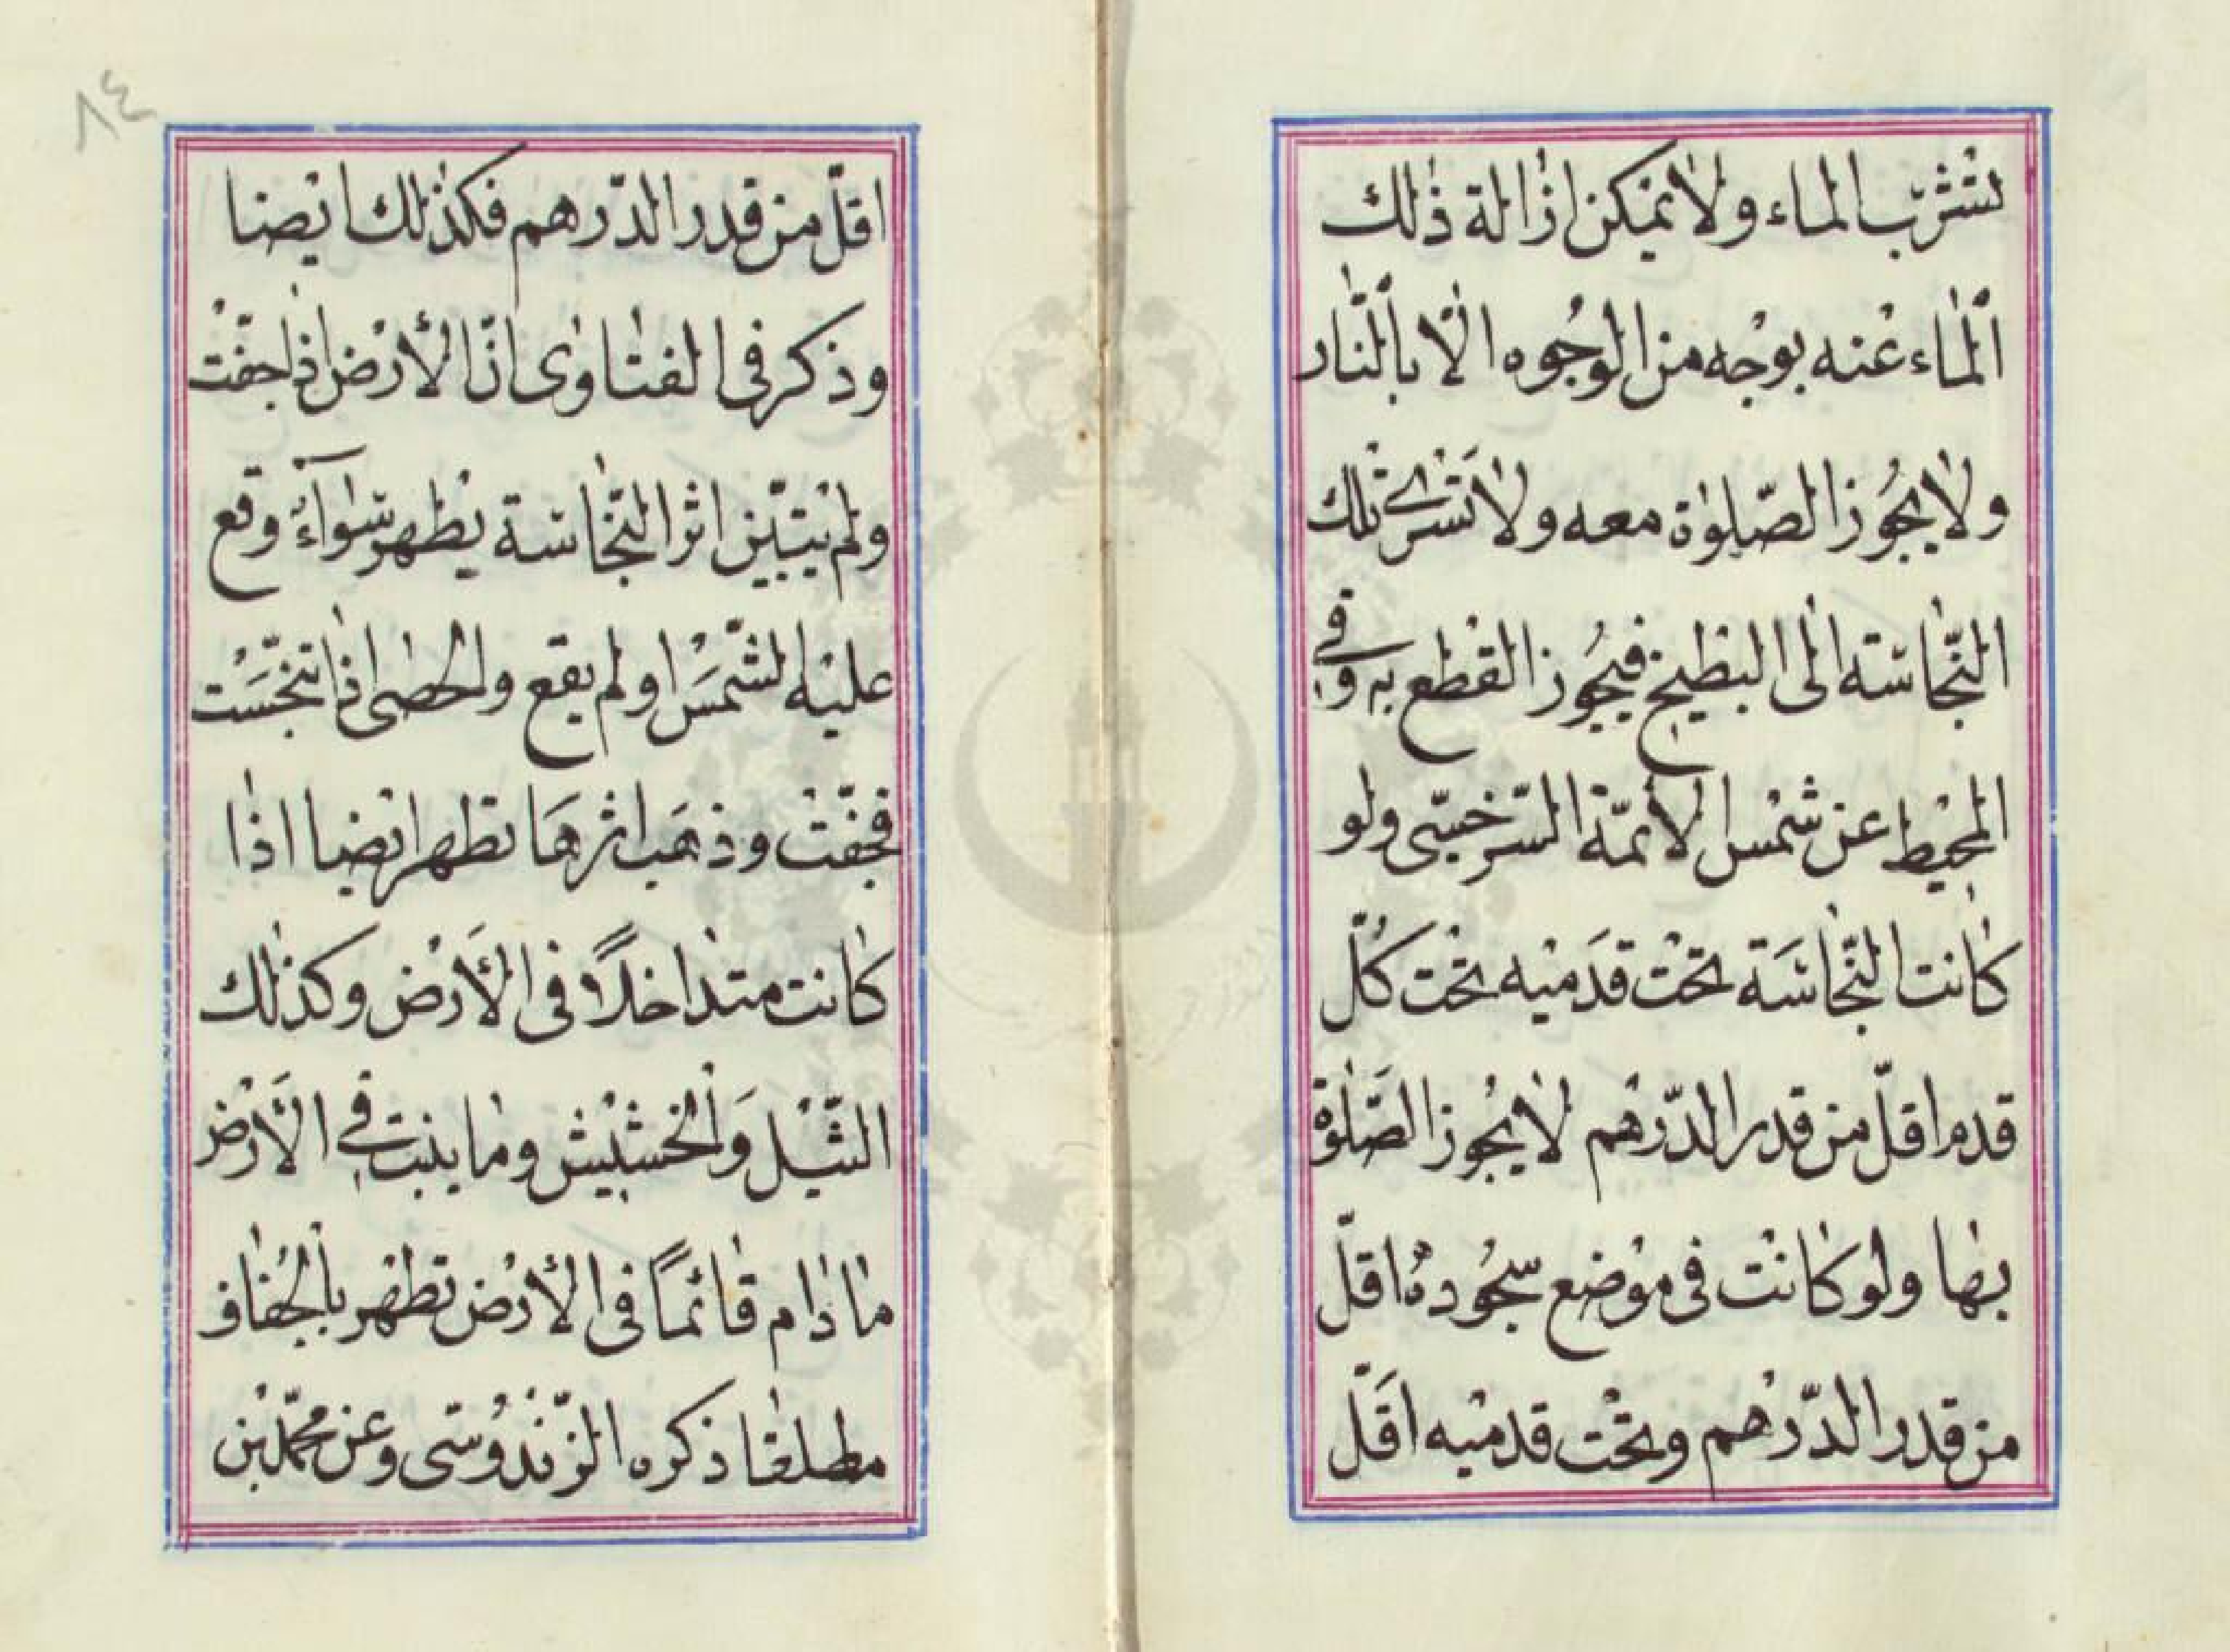 تشرّب الماء ولا يمكن ازالة ذلك
الماء عنه بوجه من الوجوه الّا بالنّار
ولا يجوز الصّلوٰة معه ولا تسرى تلك
النّجاسته الى البطيخ فيجوز القطع به وفى
المحيط عن شمس الأئمّة السّرخسّى ولو
كانت النّجاسَة تحت قدَميه تحت كُلّ
قدم اقلّ من قدر الدّرهم لا يجُوز الصّلوٰة
بها ولو كانت فى موضع سجُوده اقلّ
من قدر الدّرهم وتحت قدميه اقَلّ
٨٤
اقلّ من قدر الدّرهم فكذلك ايضا
وذكر فى الفتاوى انّ الأرض اذا جفّت
ولم يتبيّن اثر النّجاسة يطهر سوآءٌ وقع
عليه الشّمسُ او لم يقع والحصى اذا تنجّسَت
فجفّت وذهَب اثرهَا تطهر ايضا اذا
كانت متداخلاً فى الأرض وكذلك
الثّيل وَالخشيش وما ينبت فى الأرض
ما دام قائماً فى الأرض تطهر بالجُفاف
مطلقا ذكره الزّندُوستى وعن محمّد بن